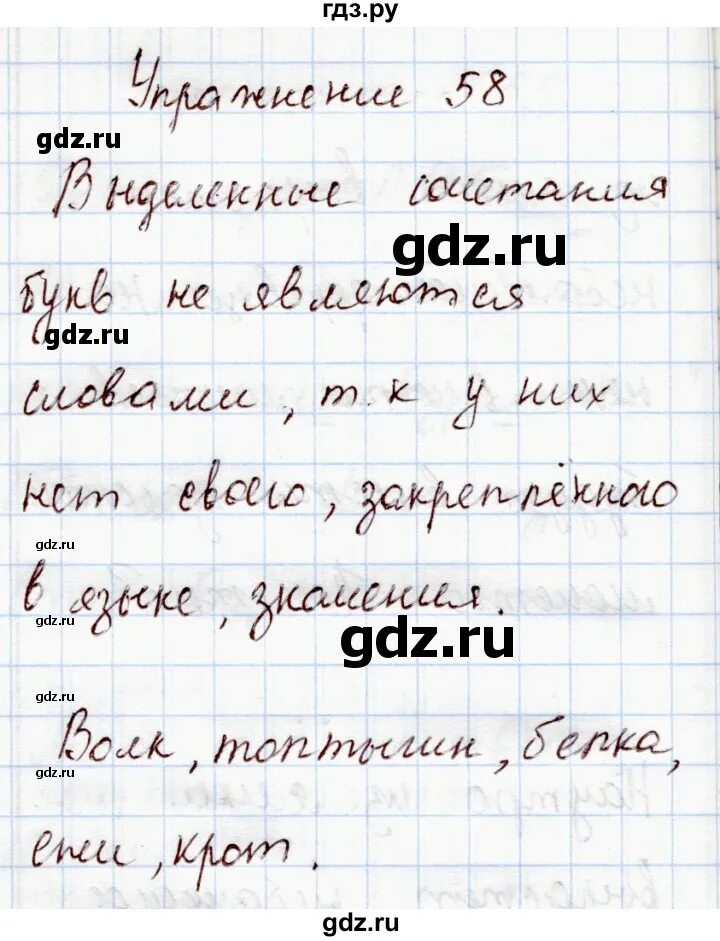 гдз.ру
Упражнение 58
gdz.ru
Выделенные сочетания
gdz.ru
букв не являются
gdz.ru
словами, т.к у них
нет своего, закреплённого
gdz.ru
в языке, значения.
gdz.ru
gdz.ru
gdz.ru
Волк, топтыгин, белка,
gdz.ru
ежи, крот.
gdz.ru